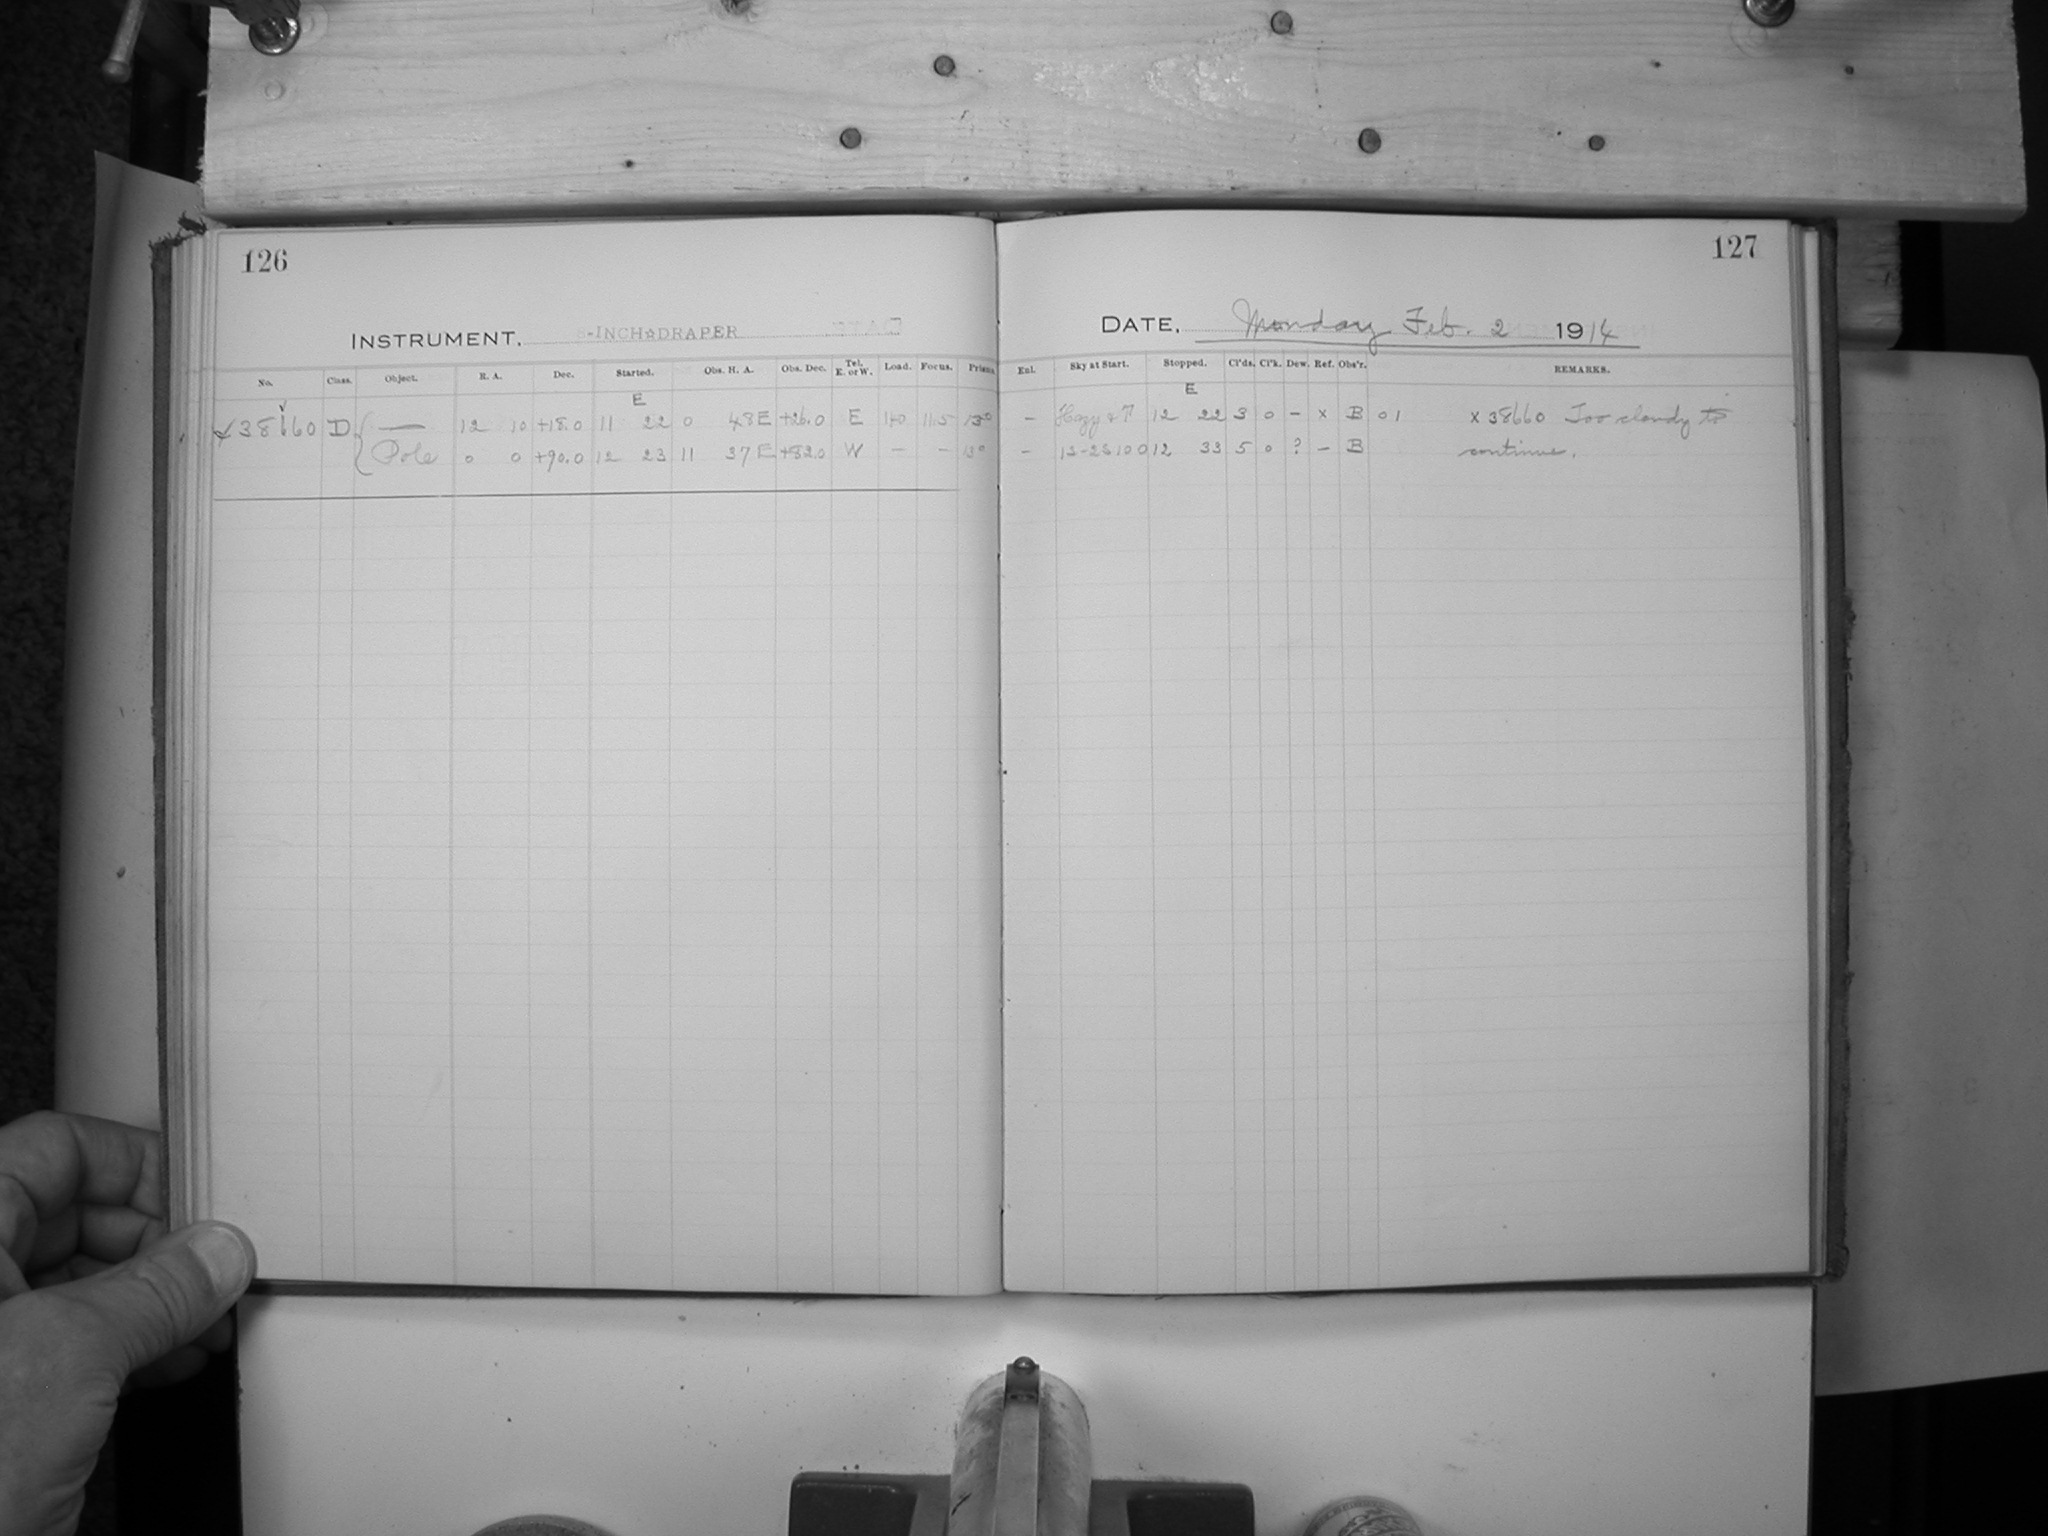 126
INSTRUMENT, 8-INCH DRAPER
No. Class. Object. R. A. Dec. Started. Obs. H. A. Obs. Dec. Tel. E. or W. Load. Focus. Prisms
E
38660 D — 12 10 +18.0 11 22 0 48 E +26.0 E 140 11.5 13°
Pole 0 0 +90.0 12 23 11 37 E +82.0 W – – 13°
127
DATE, Monday Feb. 2 1914
Enl. Sky at Start. Stopped. Cl'ds. Cl'k. Dew. Ref. Obs'r. REMARKS.
E
– Hazy & 12 22 3 0 – x B 0 1 x 38660 Too cloudy to
– 12 33 5 0 ? – B continue.